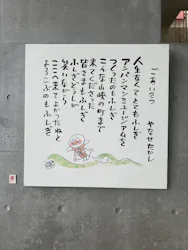 ごあいさつ
やなせたかし
人生なんてとてもふしぎ
アンパンマンミュージアムを
つくったのもふしぎ
こんな山峡の町まで
来てくださった
皆さまもふしぎ
ふしぎどうしが
笑いながら
ここへ来てよかったねと
よろこぶのもふしぎ